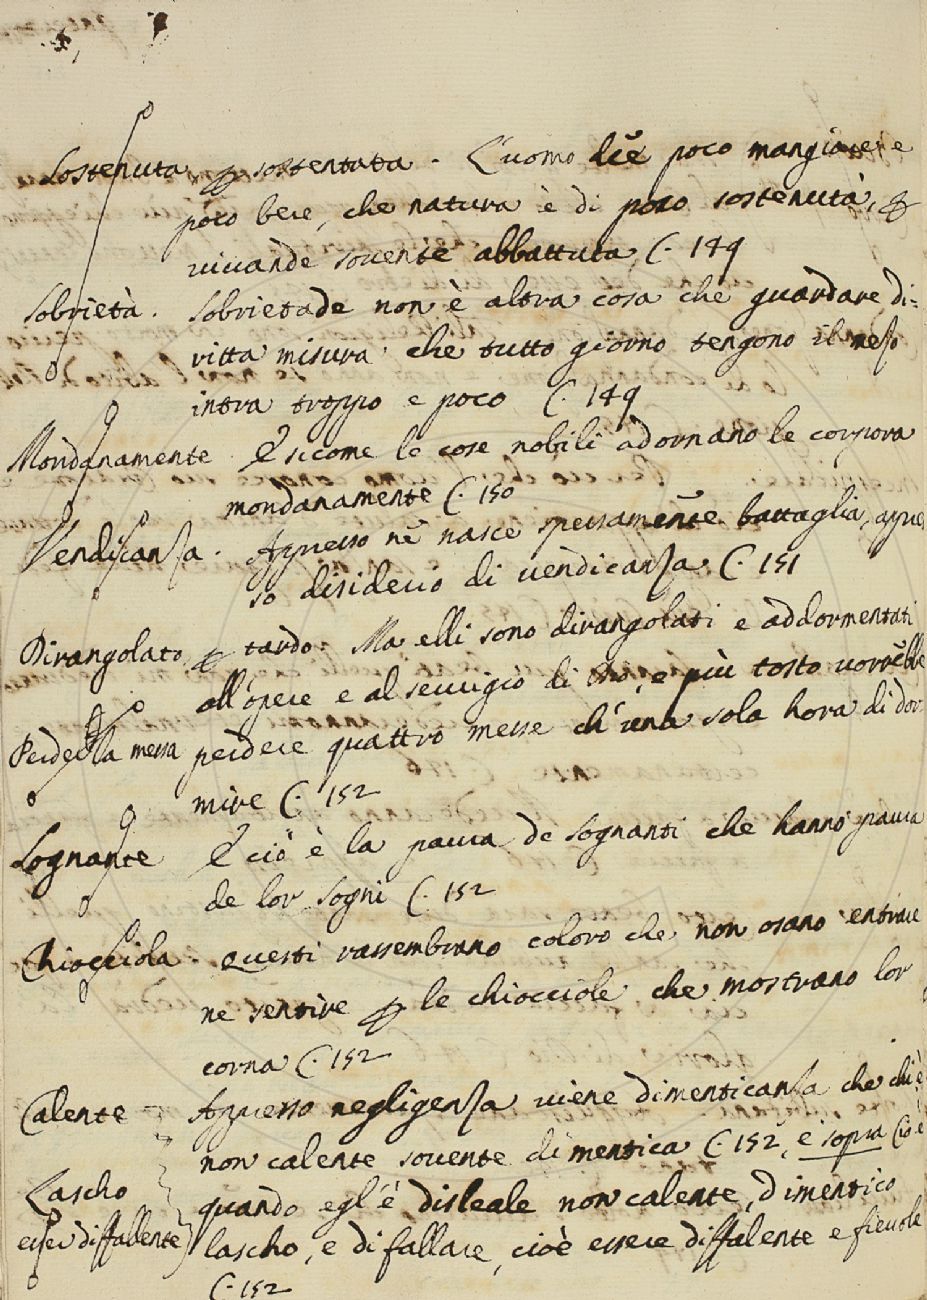 Sostenuta p sostentata. L'uomo dee poco mangiare e
poco bere, che natura è di poco sostenuta, p
vivande sovente abbattuta C. 149
Sobrietà. Sobrietade non è altra cosa che guardare di=
ritta misura che tutto giorno tengono il meso
intra troppo e poco C. 149
Mondanamente E sicome le cose nobili adornano le corpora
mondanamente C. 150
Vendicanza. Appresso ne nasce spessamente battaglia, appres
so disiderio di vendicanza C. 151
Dirangolato p tardo. Ma elli sono dirangolati e addormentati
all'opere e al servigio di Dio, e più tosto vorrebbe
Perder la messa perdere quattro messe ch'una sola hora di dor
mire C. 152
Sognante E ciò è la paura de sognanti che hanno paura
de lor sogni C. 152
Chiocciola questi rassembrano coloro che non osano entrare
ne sentire p le chiocciole che mostrano lor
corna C. 152
Calente Appresso negligenza viene dimenticanza che chi è
non calente sovente dimentica C. 152, e sopra Cio è
Lascho quando egl'è disleale non calente, dimentico
esser diffalente lascho, e di fallare, cioè essere diffalente e fievole
C. 152